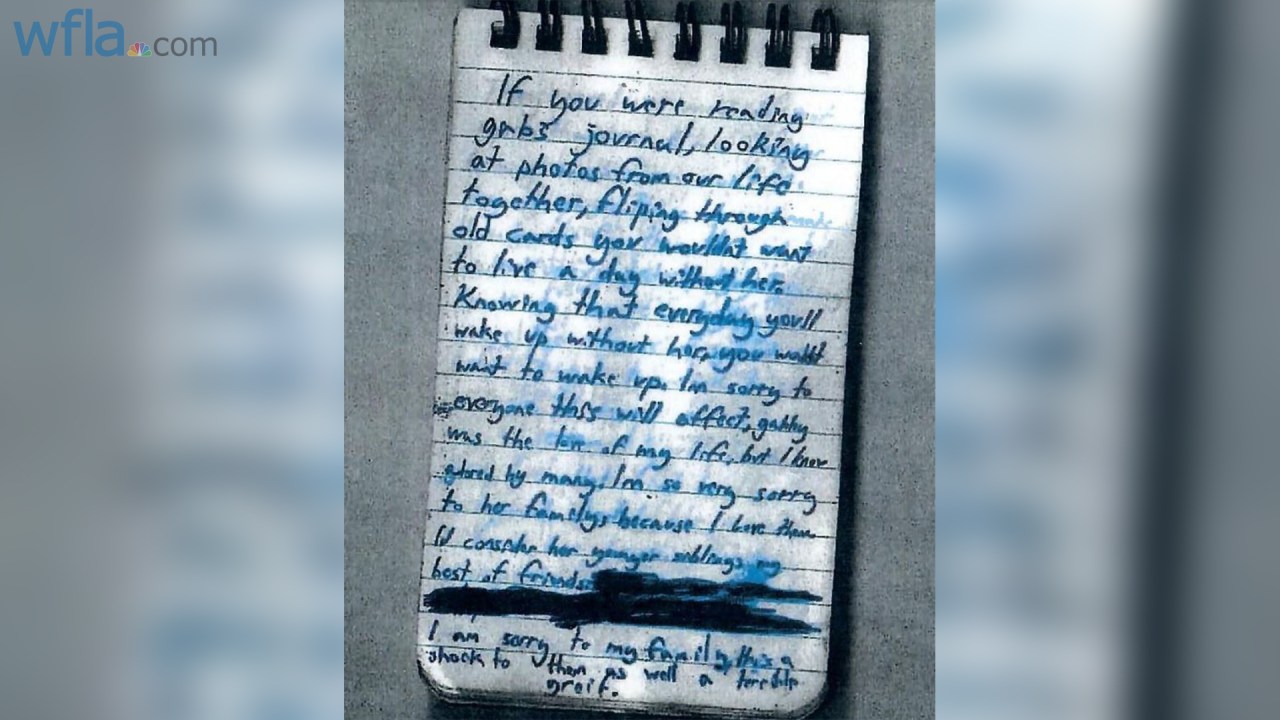 wfla.com
If you were reading
gabs journal, looking
at photos from our life
together, fliping through
old cards you wouldnt want
to live a day without her.
Knowing that everyday you'll
wake up without her, you
want to wake up. I'm sorry to
everyone this will affect, gabby
was the love of my life, but I know
by many. I'm so very sorry
to her familys because I love them.
I'd consider her younger siblings my
best of friends.
I am sorry to my family, this is a
shock to them as well a terrible
greif.